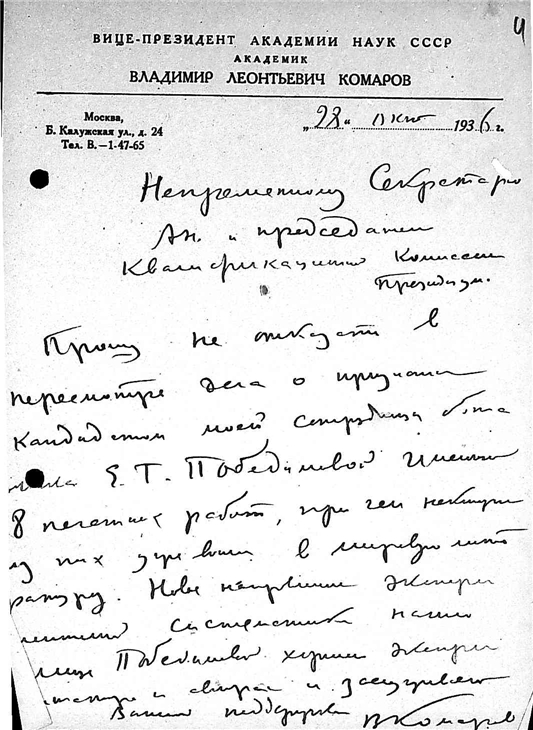 4
ВИЦЕ-ПРЕЗИДЕНТ АКАДЕМИИ НАУК СССР
АКАДЕМИК
ВЛАДИМИР ЛЕОНТЬЕВИЧ КОМАРОВ
Москва,
Б. Калужская ул., д. 24
Тел. В.—1-47-65
„28“ Окт 1936 г.
Непременному Секретарю
Ан. и председателю
Квалификационной Комиссии
Президиума.
Прошу не отказать в
пересмотре дела о признании
кандидатом моей сотрудницы
Е. Т. Победимовой Имеет
8 печатных работ, при чем некоторые
из них уже вошли в мировую лите
ратуру. Новое направление экспери
ментальной систематики нашло
лице Победимовой хорошего экспери
ментатора и автора и заслуживает
Вашей поддержки ВКомаров